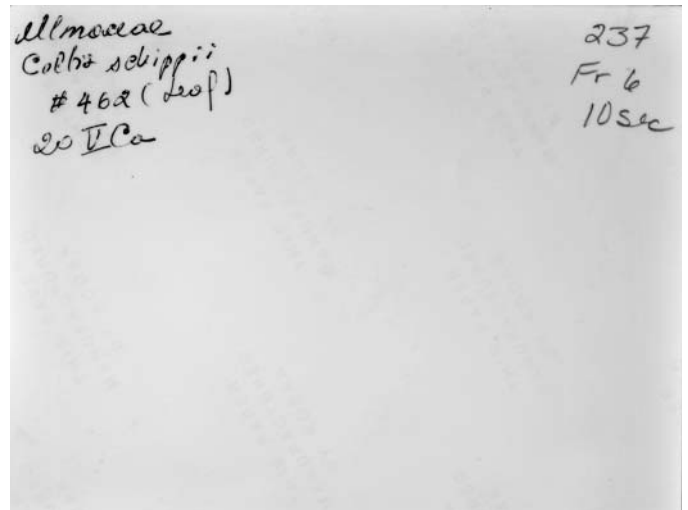 Ulmaceae
Celtis schippii
# 462 (Leaf)
20 V Ca
237
Fr 6
10 sec